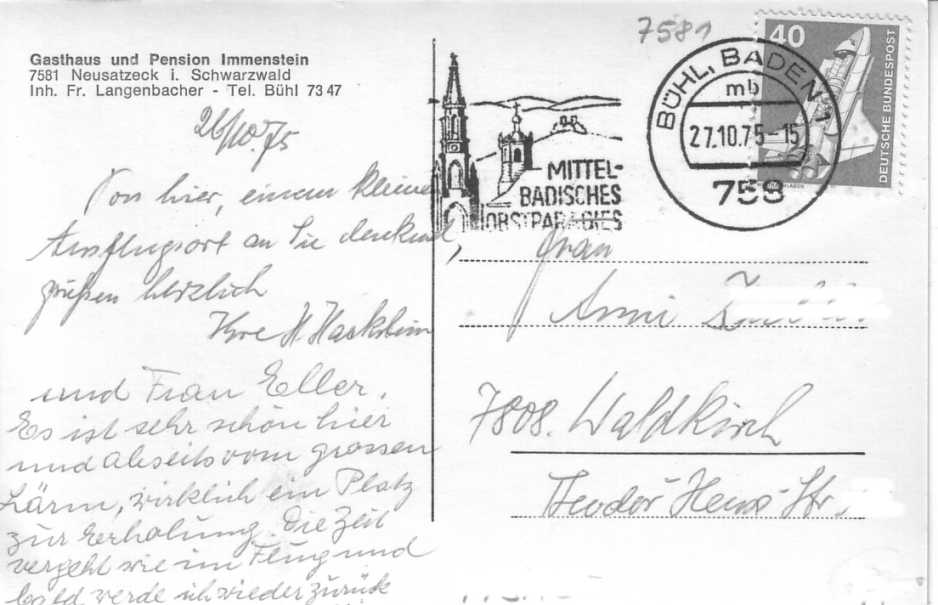 Gasthaus und Pension Immenstein
7581 Neusatzeck i. Schwarzwald
Inh. Fr. Langenbacher - Tel. Bühl 73 47
26/10.75
Von hier, einem kleinen
Ausflugsort an Sie denkend,
grüßen herzlich
Ihre H
und Frau Eller.
Es ist sehr schön hier
und abseits vom grossen
Lärm, wirklich ein Platz
zur Erholung. Die Zeit
vergeht wie im Flug und
bald werde ich wieder zurück
7581
MITTEL-
BADISCHES
OBSTPARADIES
BÜHL, BADEN 1
mb
27.10.75-15
758
40
DEUTSCHE BUNDESPOST
Frau
Anni
7808 Waldkirch
Theodor-Heuss-Str.